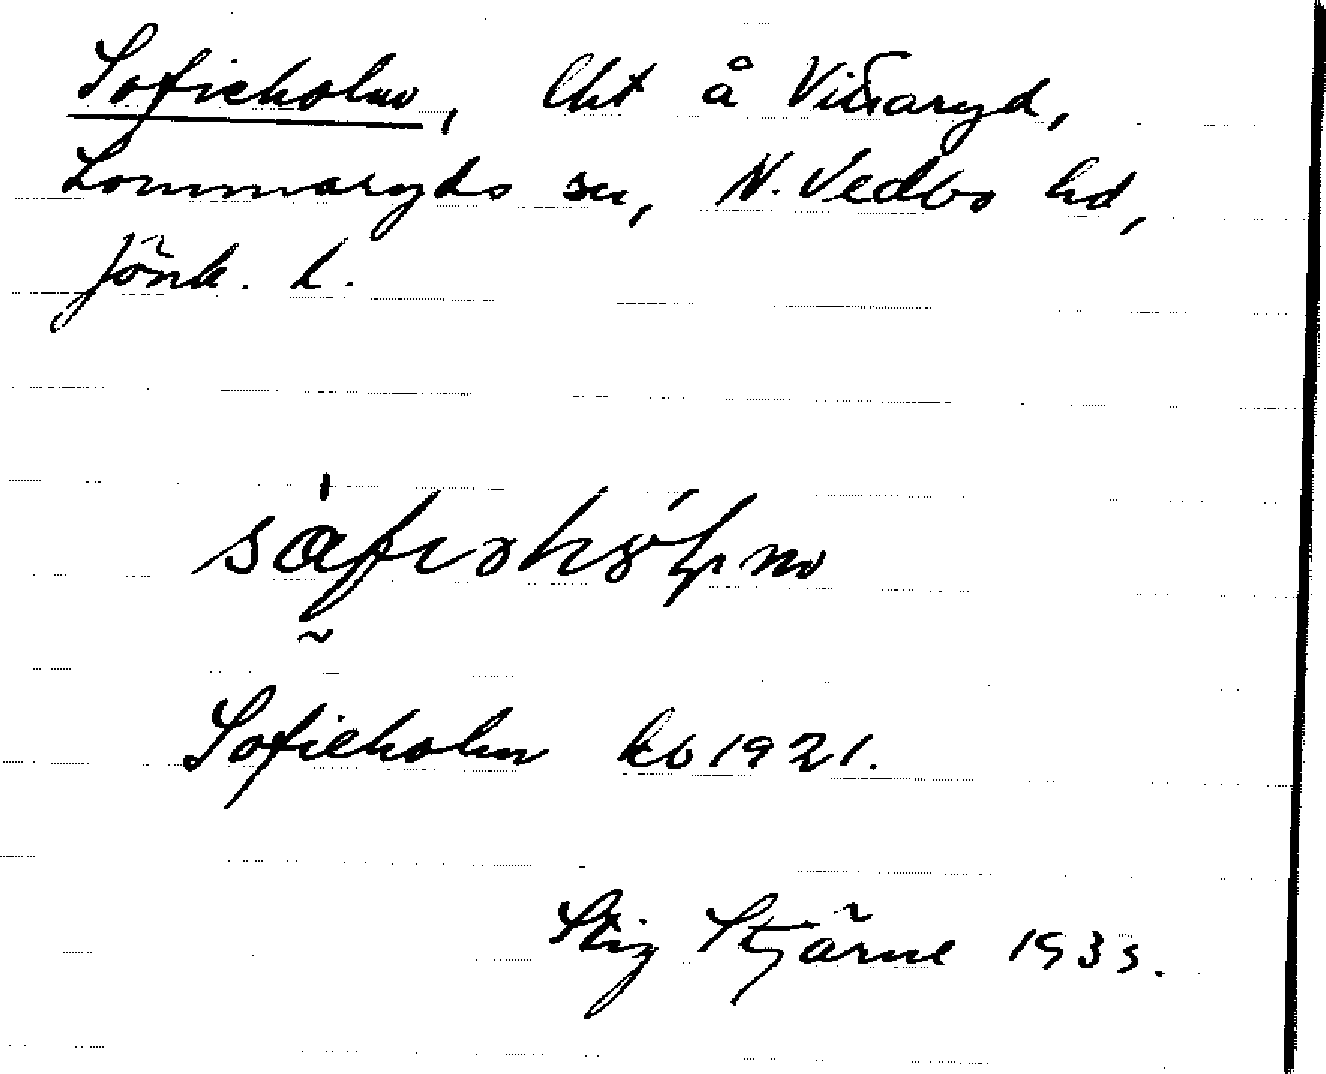 Sofieholm, lht å Vittaryd,
Lommaryds sn, N. Vedbo hd,
Jönk. l.
Sofieholm kb 1921.
Stig Stjärne 1933.